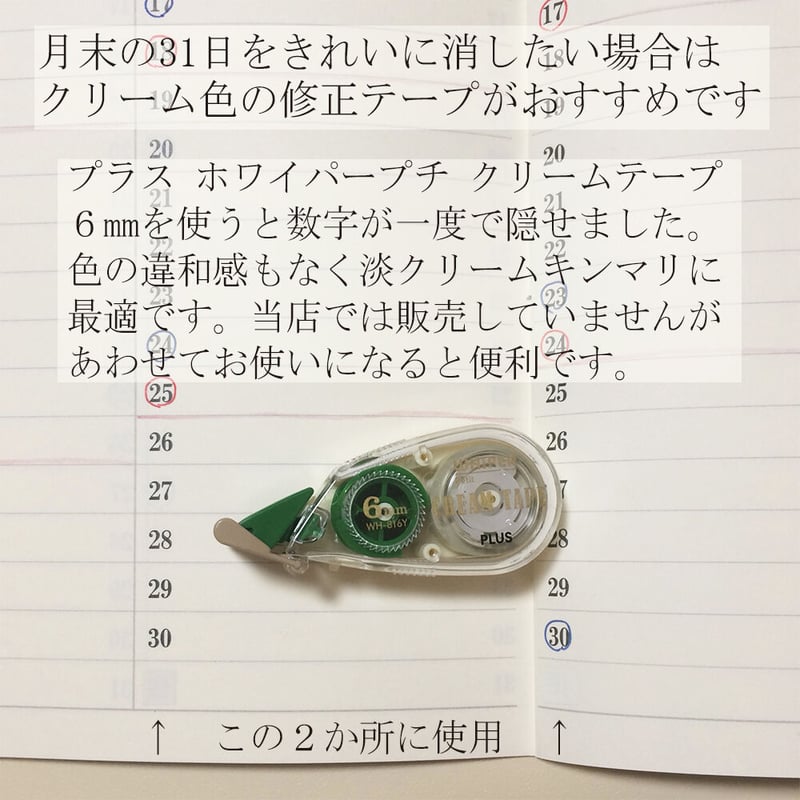 月末の31日をきれいに消したい場合は
クリーム色の修正テープがおすすめです
プラス ホワイパープチ クリームテープ
６㎜を使うと数字が一度で隠せました。
色の違和感もなく淡クリームキンマリに
最適です。当店では販売していませんが
あわせてお使いになると便利です。
17 17
18 18
19 19
20 20
21 21
22 22
23 23
24 24
25 25
26 26
27 27
28 28
29 29
30 30
6mm
WH-816Y
CREAM TAPE
PLUS
↑ この２か所に使用 ↑